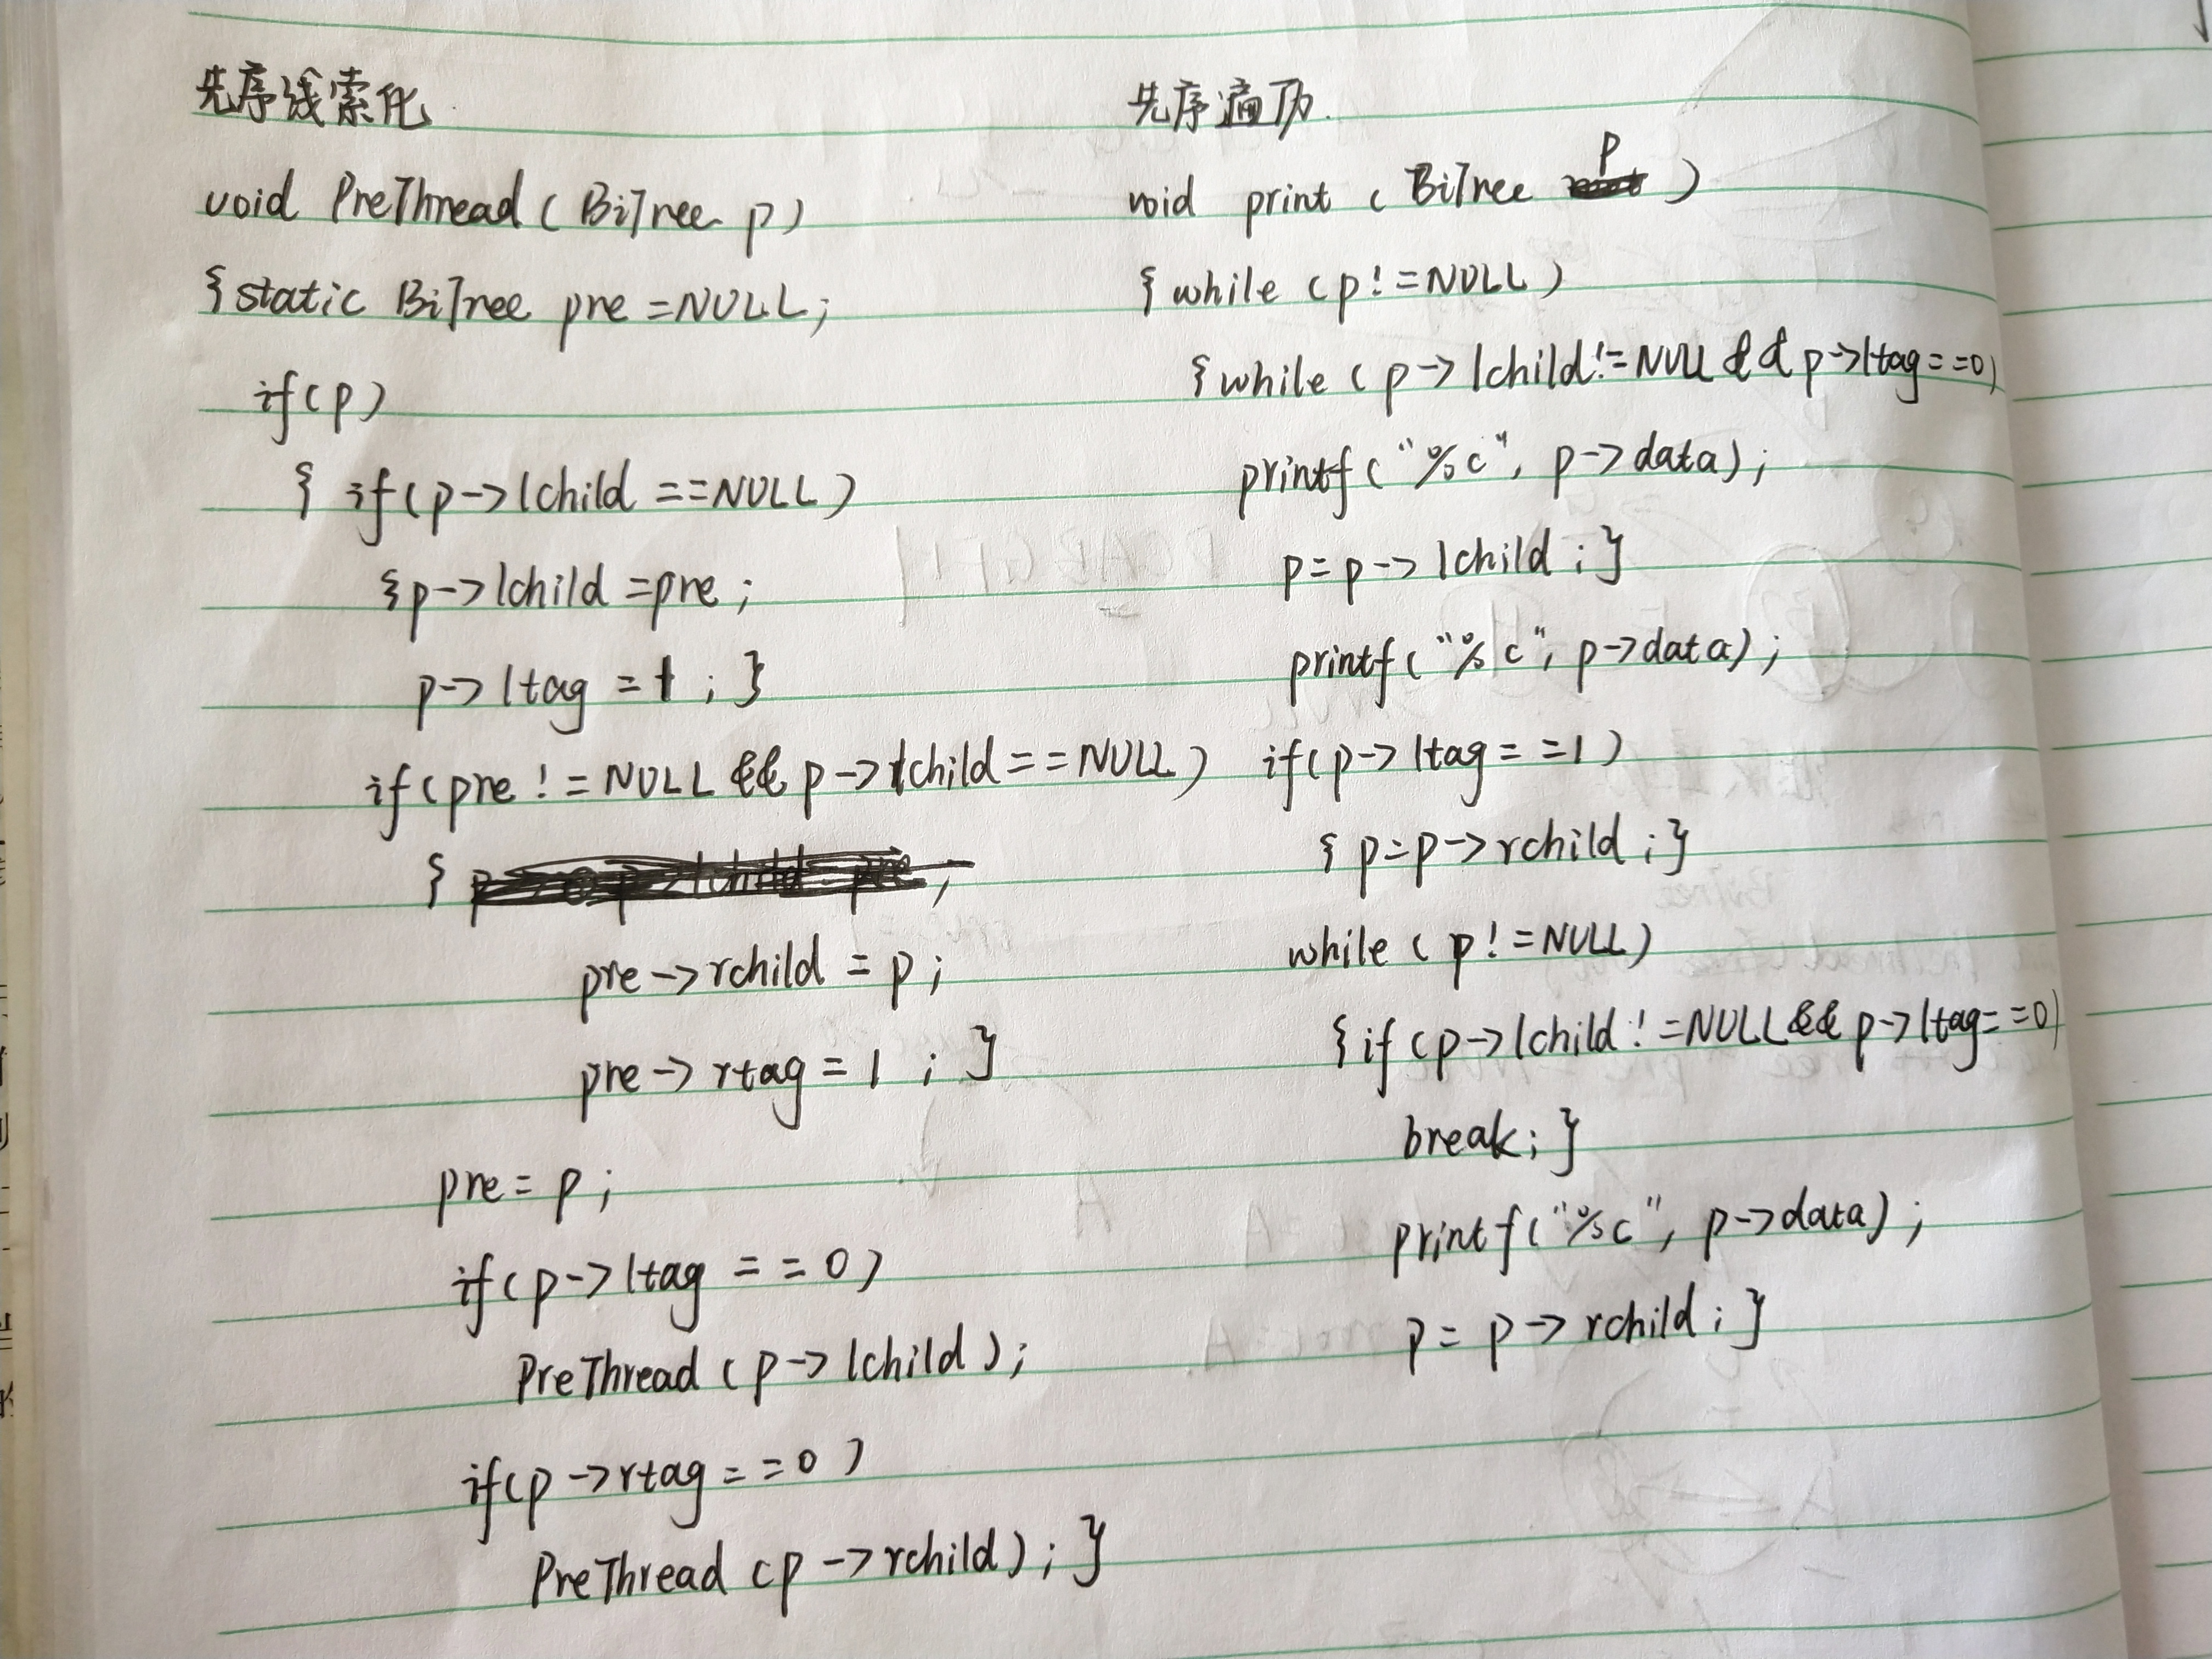 先序线索化
void PreThread ( BiTree p )
{ static BiTree pre = NULL ;
if ( p )
{ if ( p -> lchild == NULL )
{ p -> lchild = pre ;
p -> ltag = 1 ; }
if ( pre != NULL && p -> lchild == NULL )
{
pre -> rchild = p ;
pre -> rtag = 1 ; }
pre = p ;
if ( p -> ltag == 0 )
PreThread ( p -> lchild ) ;
if ( p -> rtag == 0 )
PreThread ( p -> rchild ) ; }
先序遍历.
void print ( BiTree p )
{ while ( p != NULL )
{ while ( p -> lchild != NULL && p -> ltag == 0 )
printf ( "%c", p -> data ) ;
p = p -> lchild ; }
printf ( "%c", p -> data ) ;
if ( p -> ltag == 1 )
{ p = p -> rchild ; }
while ( p != NULL )
{ if ( p -> lchild != NULL && p -> ltag == 0 )
break ; }
printf ( "%c", p -> data ) ;
p = p -> rchild ; }